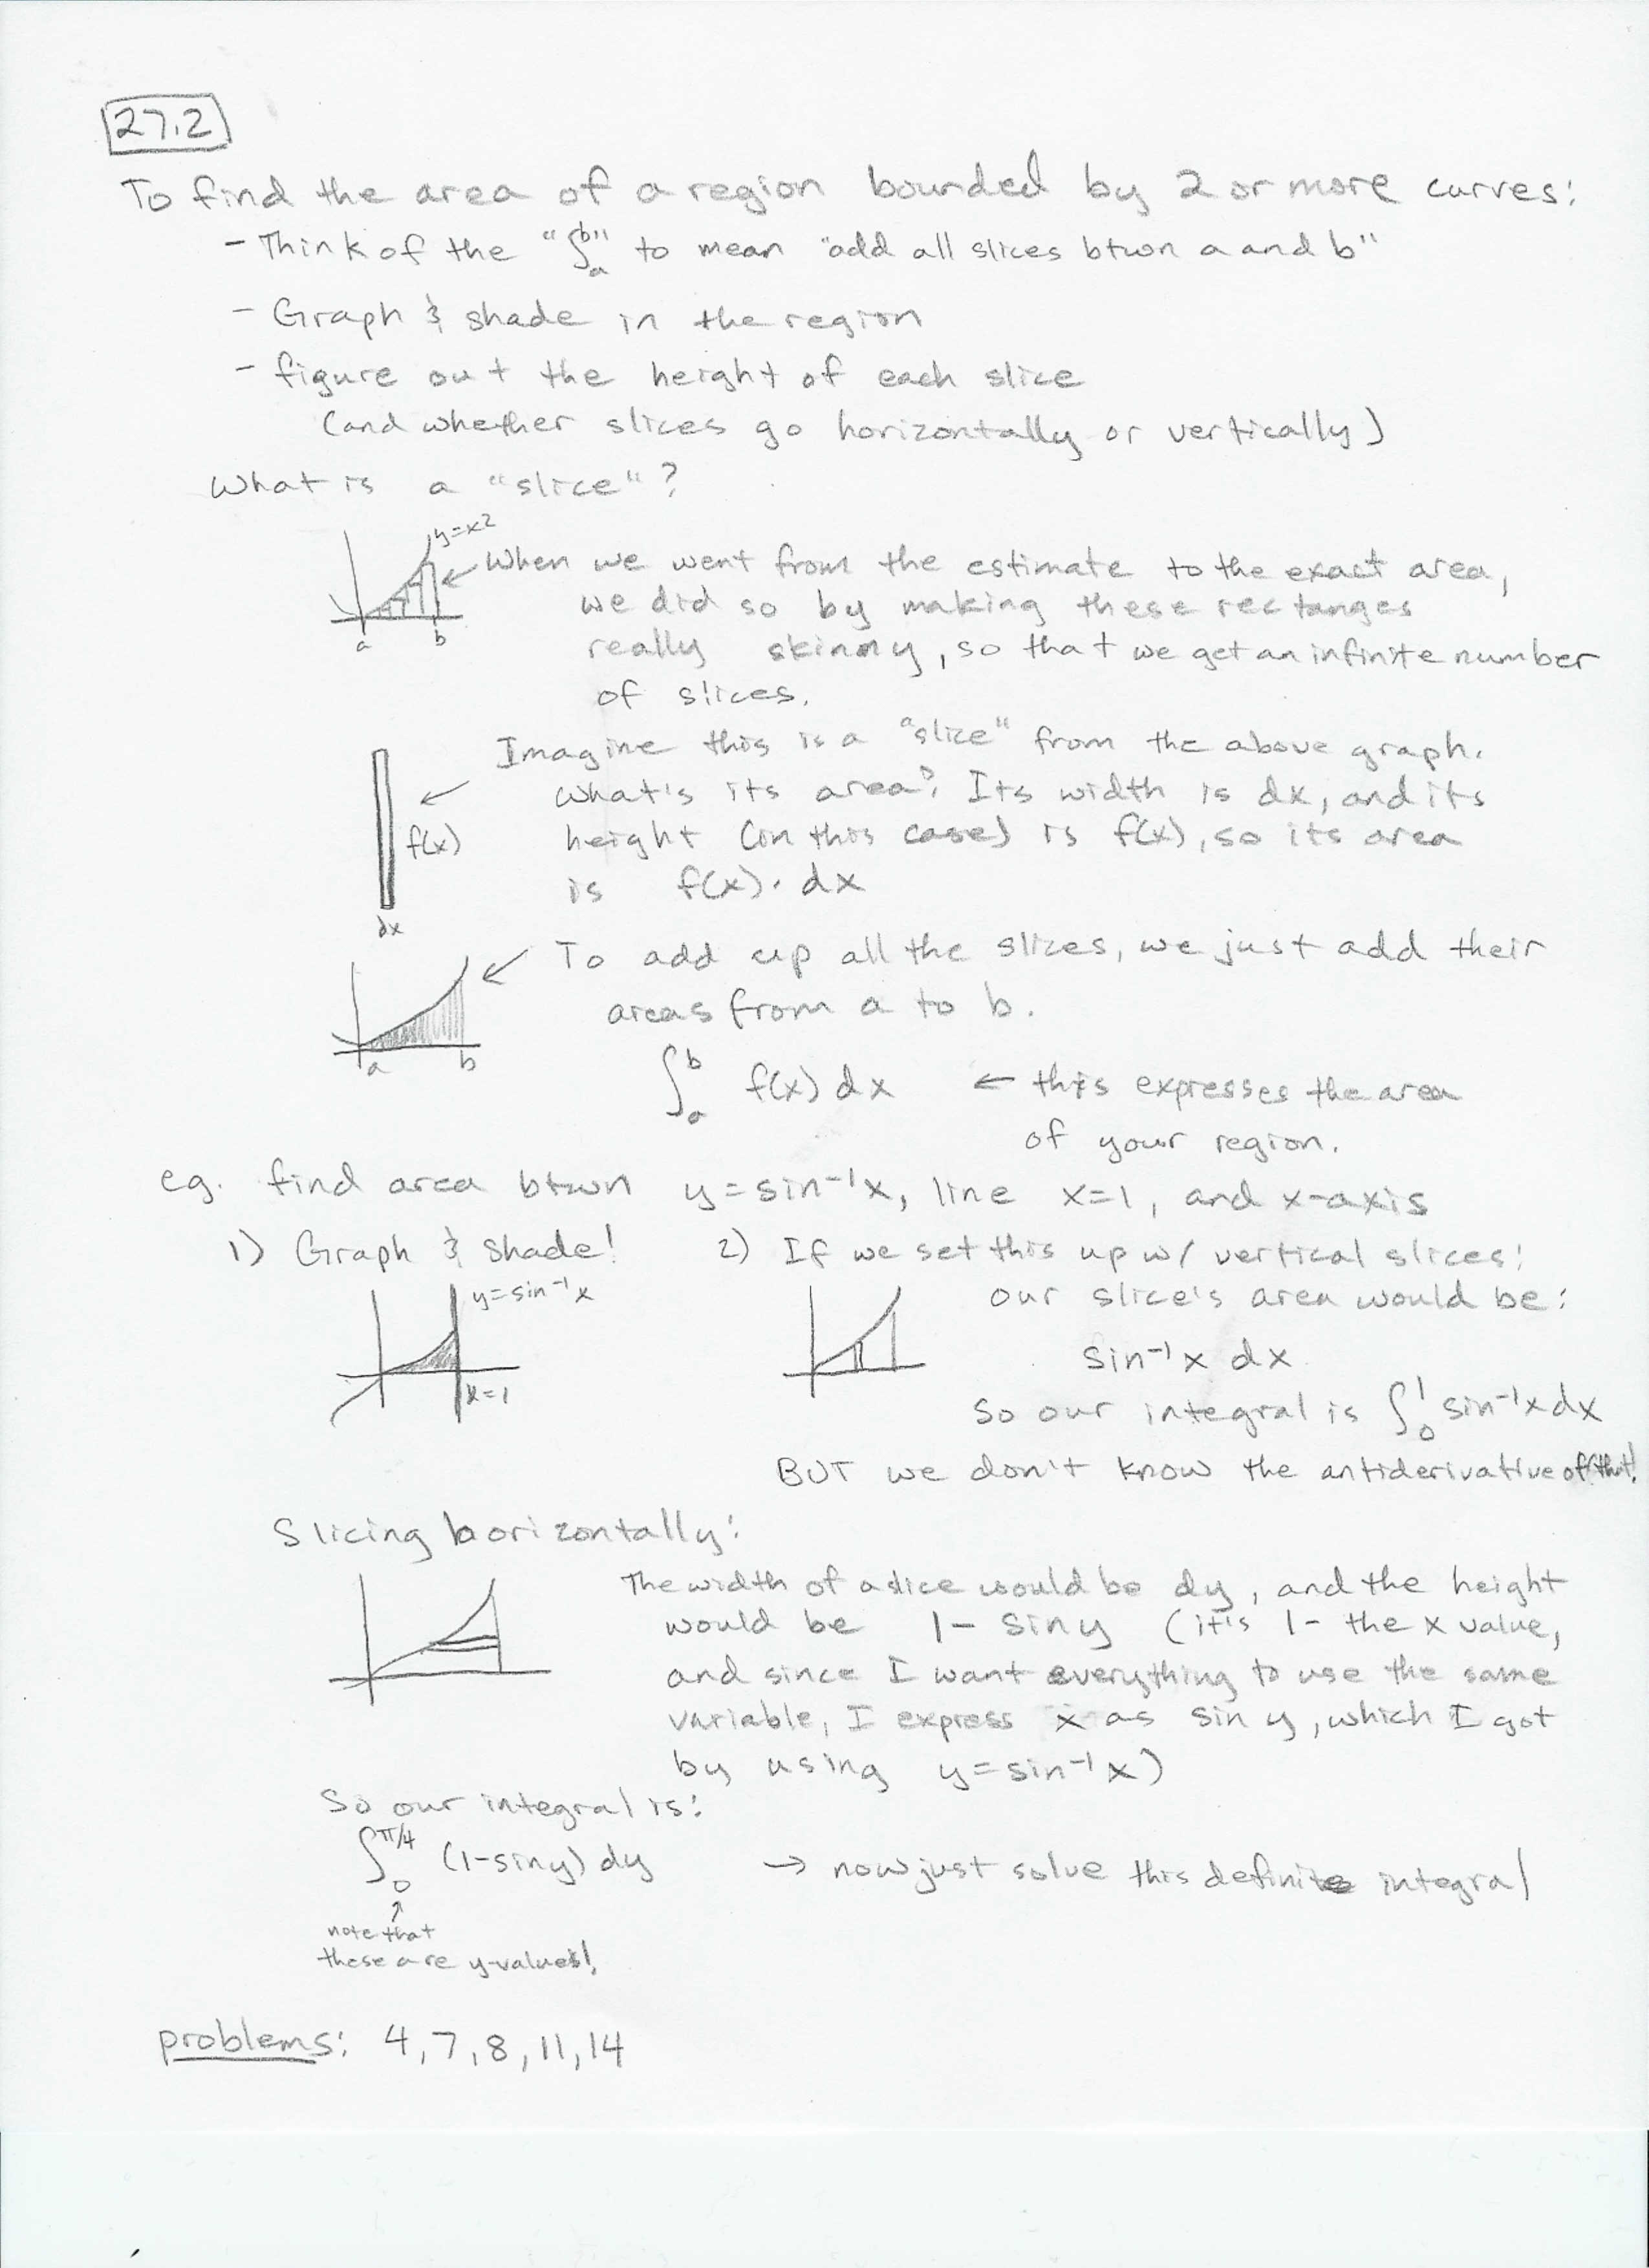 27.2
To find the area of a region bounded by 2 or more curves:
- Think of the "∫ₐᵇ" to mean "add all slices btwn a and b"
- Graph & shade in the region
- figure out the height of each slice
(and whether slices go horizontally or vertically)
What is a "slice"?
y=x2
a b
When we went from the estimate to the exact area,
we did so by making these rectanges
really skinny, so that we get an infinite number
of slices.
f(x)
dx
Imagine this is a "slice" from the above graph.
What's its area? Its width is dx, and its
height (in this case) is f(x), so its area
is f(x)·dx
a b
To add up all the slices, we just add their
areas from a to b.
∫ₐᵇ f(x) dx ← this expresses the area
of your region.
eg. find area btwn y=sin⁻¹x, line x=1, and x-axis
1) Graph & Shade!
y=sin⁻¹x
x=1
2) If we set this up w/ vertical slices:
our slice's area would be:
sin⁻¹x dx
So our integral is ∫₀¹ sin⁻¹x dx
BUT we don't know the antiderivative of that!
Slicing horizontally:
The width of a slice would be dy, and the height
would be 1 - sin y (it's 1 - the x value,
and since I want everything to use the same
variable, I express x as sin y, which I got
by using y=sin⁻¹x)
So our integral is:
∫₀^π/4 (1-siny) dy → now just solve this definite integral
↑
note that
these are y-values!
problems: 4, 7, 8, 11, 14